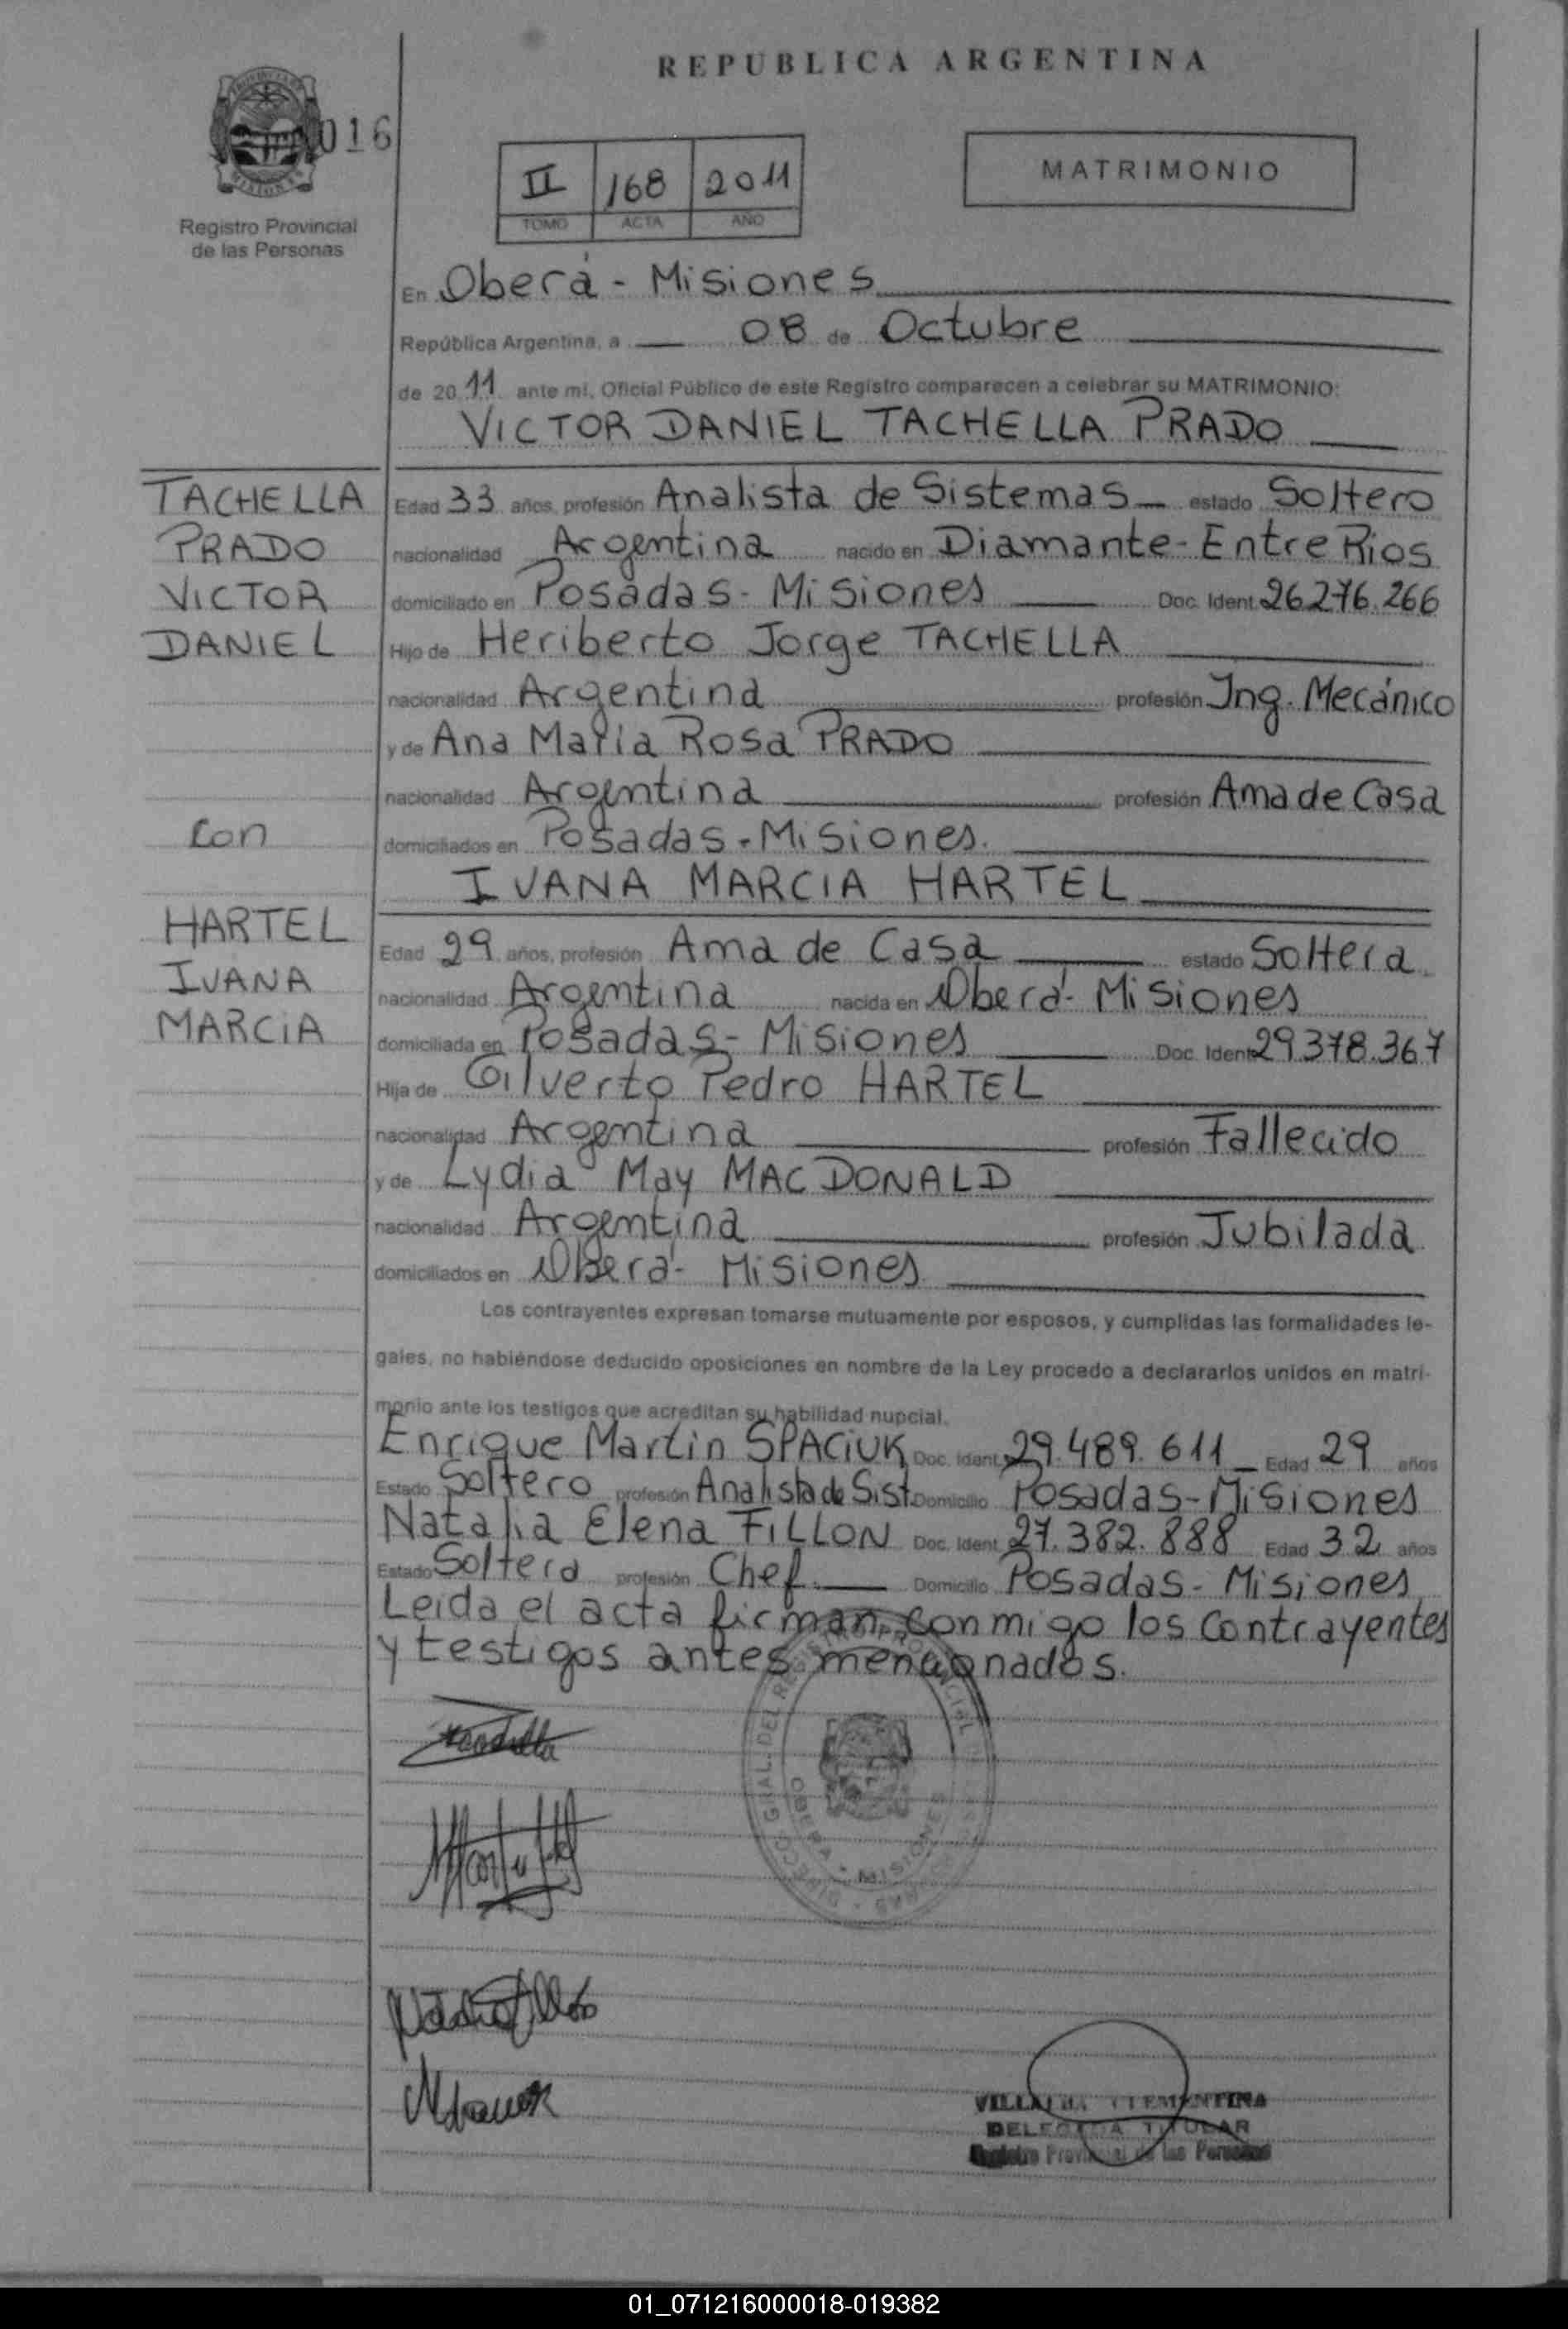 REPUBLICA ARGENTINA
PROVINCIA
MISIONES
016
Registro Provincial
de las Personas
II 168 2011
TOMO ACTA AÑO
MATRIMONIO
En Oberá - Misiones
República Argentina, a 08 de Octubre
de 20 11 ante mi, Oficial Público de este Registro comparecen a celebrar su MATRIMONIO:
VICTOR DANIEL TACHELLA PRADO
TACHELLA
PRADO
VICTOR
DANIEL
Con
HARTEL
IVANA
MARCIA
Edad 33 años, profesión Analista de Sistemas estado Soltero
nacionalidad Argentina nacido en Diamante - Entre Rios
domiciliado en Posadas - Misiones Doc. Ident. 26.276.266
Hijo de Heriberto Jorge TACHELLA
nacionalidad Argentina profesión Ing. Mecánico
y de Ana Maria Rosa PRADO
nacionalidad Argentina profesión Ama de Casa
domiciliados en Posadas - Misiones.
IVANA MARCIA HARTEL
Edad 29 años, profesión Ama de Casa estado Soltera
nacionalidad Argentina nacida en Oberá - Misiones
domiciliada en Posadas - Misiones Doc. Ident. 29.378.367
Hija de Gilverto Pedro HARTEL
nacionalidad Argentina profesión Fallecido
y de Lydia May MAC DONALD
nacionalidad Argentina profesión Jubilada
domiciliados en Oberá - Misiones
Los contrayentes expresan tomarse mutuamente por esposos, y cumplidas las formalidades le-
gales, no habiéndose deducido oposiciones en nombre de la Ley procedo a declararlos unidos en matri-
monio ante los testigos que acreditan su habilidad nupcial.
Enrique Martin SPACIUK Doc. Ident. 29.489.611 Edad 29 años
Estado Soltero profesión Analista de Sist. Domicilio Posadas - Misiones
Natalia Elena FILLON Doc. Ident. 27.382.888 Edad 32 años
Estado Soltera profesión Chef. Domicilio Posadas - Misiones
Leida el acta firman conmigo los contrayentes
y testigos antes mencionados.
OBERA - MISIONES
VILLALBA CLEMENTINA
DELEGADA TITULAR
Registro Provincial de las Personas
01_071216000018-019382